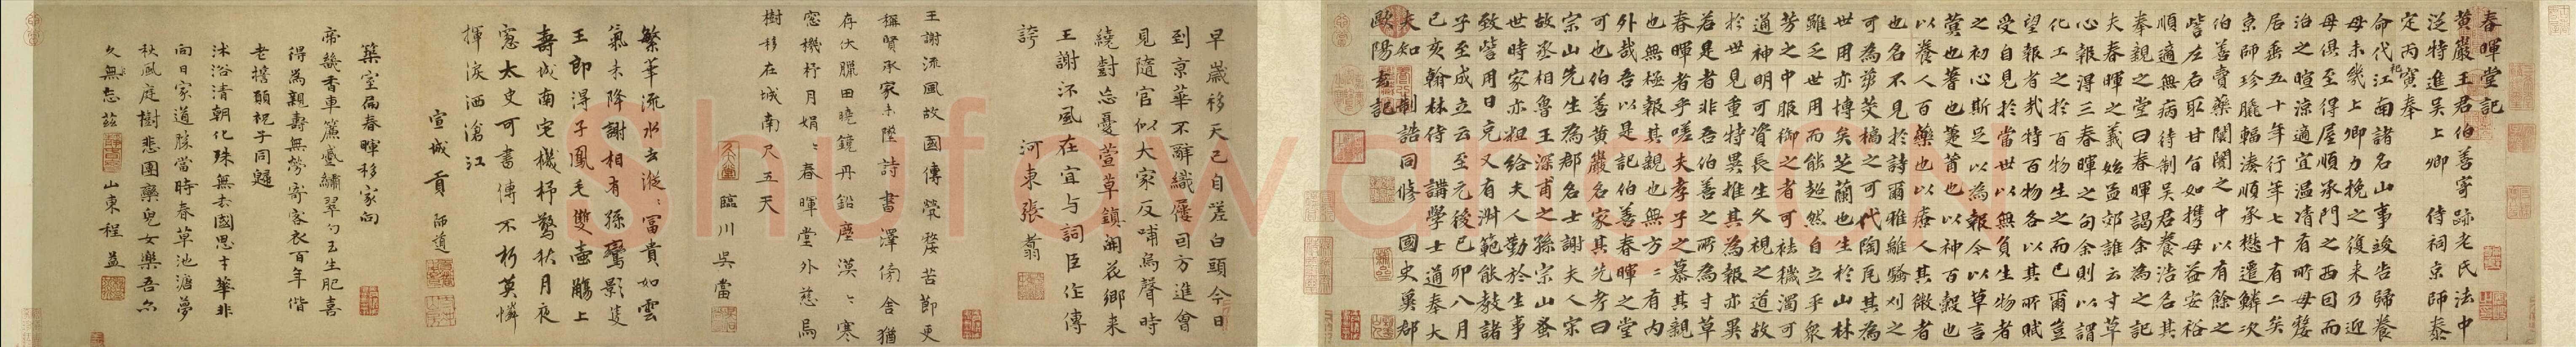 春暉堂記
黃巖王君伯善寄跡老氏法中
泛特進吳上卿 侍祠京師泰
定丙寅奉
命代江南諸名山事竣告歸養
母未幾上卿力挽之復来乃迎
母俱至得屋順承門之西因而
泊之暄涼適宜温凊有所母嫠
居垂五十年行年七十有二矣
京師珍膬輻湊順承懋遷鱗次
伯善賣藥闤闠之中以有餘之
訾左右取甘旨如携母益安裕
順適無病待制吳君養浩名其
奉親之堂曰春暉謁余為之記
夫春暉之義始孟郊誰云寸草
心報得三春暉之句余則以謂
化工之於百物生之而已爾豈
望報者哉特百物各以其所賦
受自見於當世以無負生物者
之初心斯足以為報今以草言
蓂也蓍也萐莆也以神百穀也
以養人百藥也以療人其微者
也名不見於詩爾雅離騷刈之
可為蒭茭槁之可代陶尾其為
世用亦博矣芝蘭也生於山林
雖乏世用而能超然自立乎衆
芳之中服御之者可祛穢濁可
通神明可資長生久視之道故
於世見重特異推其為報亦異
若是者非吾伯善之所為寸草
春暉者乎嗟夫孝子之慕其親
也無極報其親也無方〻有内
外哉吾以是記伯善春暉之堂
可也伯善黃巖名家其先考曰
宗山先生為郡名士謝夫人宗
故丞相魯王深甫之孫宗山蚤
世時家亦粗給夫人勤於生事
致訾用日充又有淵範能教諸
子至成立云至元後己卯八月
己亥翰林侍講學士通奉大
夫知制誥同修國史冀郡
歐陽玄記
早歲移天己自嗟白頭今日
到京華不辭織屨囘方進會
見隨官似大家反哺烏聲時
繞對忘憂萱草鎮開花鄉来
王謝流風在宜与詞臣作傳
誇 河東張翥
王謝流風故國傳煢嫠苦節更
稱賢承家未墜詩書澤僑舍猶
存伏臘田曉鏡丹鉛塵漠〻寒
窓機杼月娟〻春暉堂外慈烏
樹移在城南尺五天
臨川吳當
繁華流水去漎〻冨貴如雲
氣未降謝相有孫鸞影隻
王郎得子鳳毛雙壺觴上
壽城南宅機杼驚秋月夜
窓太史可書傳不朽莫憐
揮淚洒滄江
宣城貢師道
築室扁春暉移家向
帝畿香車簾盛繡翠勺玉生肥喜
得為親壽無勞寄客衣百年偕
老搢願祝子同歸
沐浴清朝化殊無去國思寸華非
向日家道勝當時春草池塘夢
秋風庭樹悲團欒兒女樂吾亦
久無忘茲 山東程益
Shufawang.com